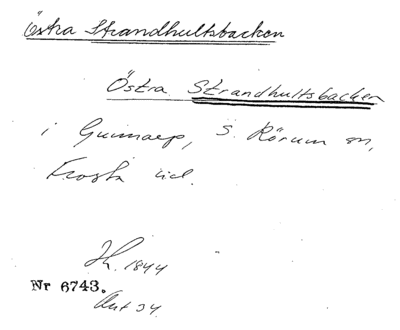 Östra Strandhultsbacken
Östra Strandhultsbacken
i Gunnarp, S. Rörum sn,
Frosta hd.
1844
Nr 6743.